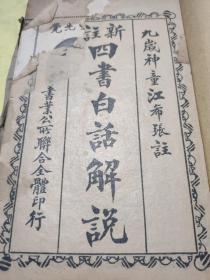 九歲神童江希張註
新註
四書白話解説
書業公所聯合全體印行